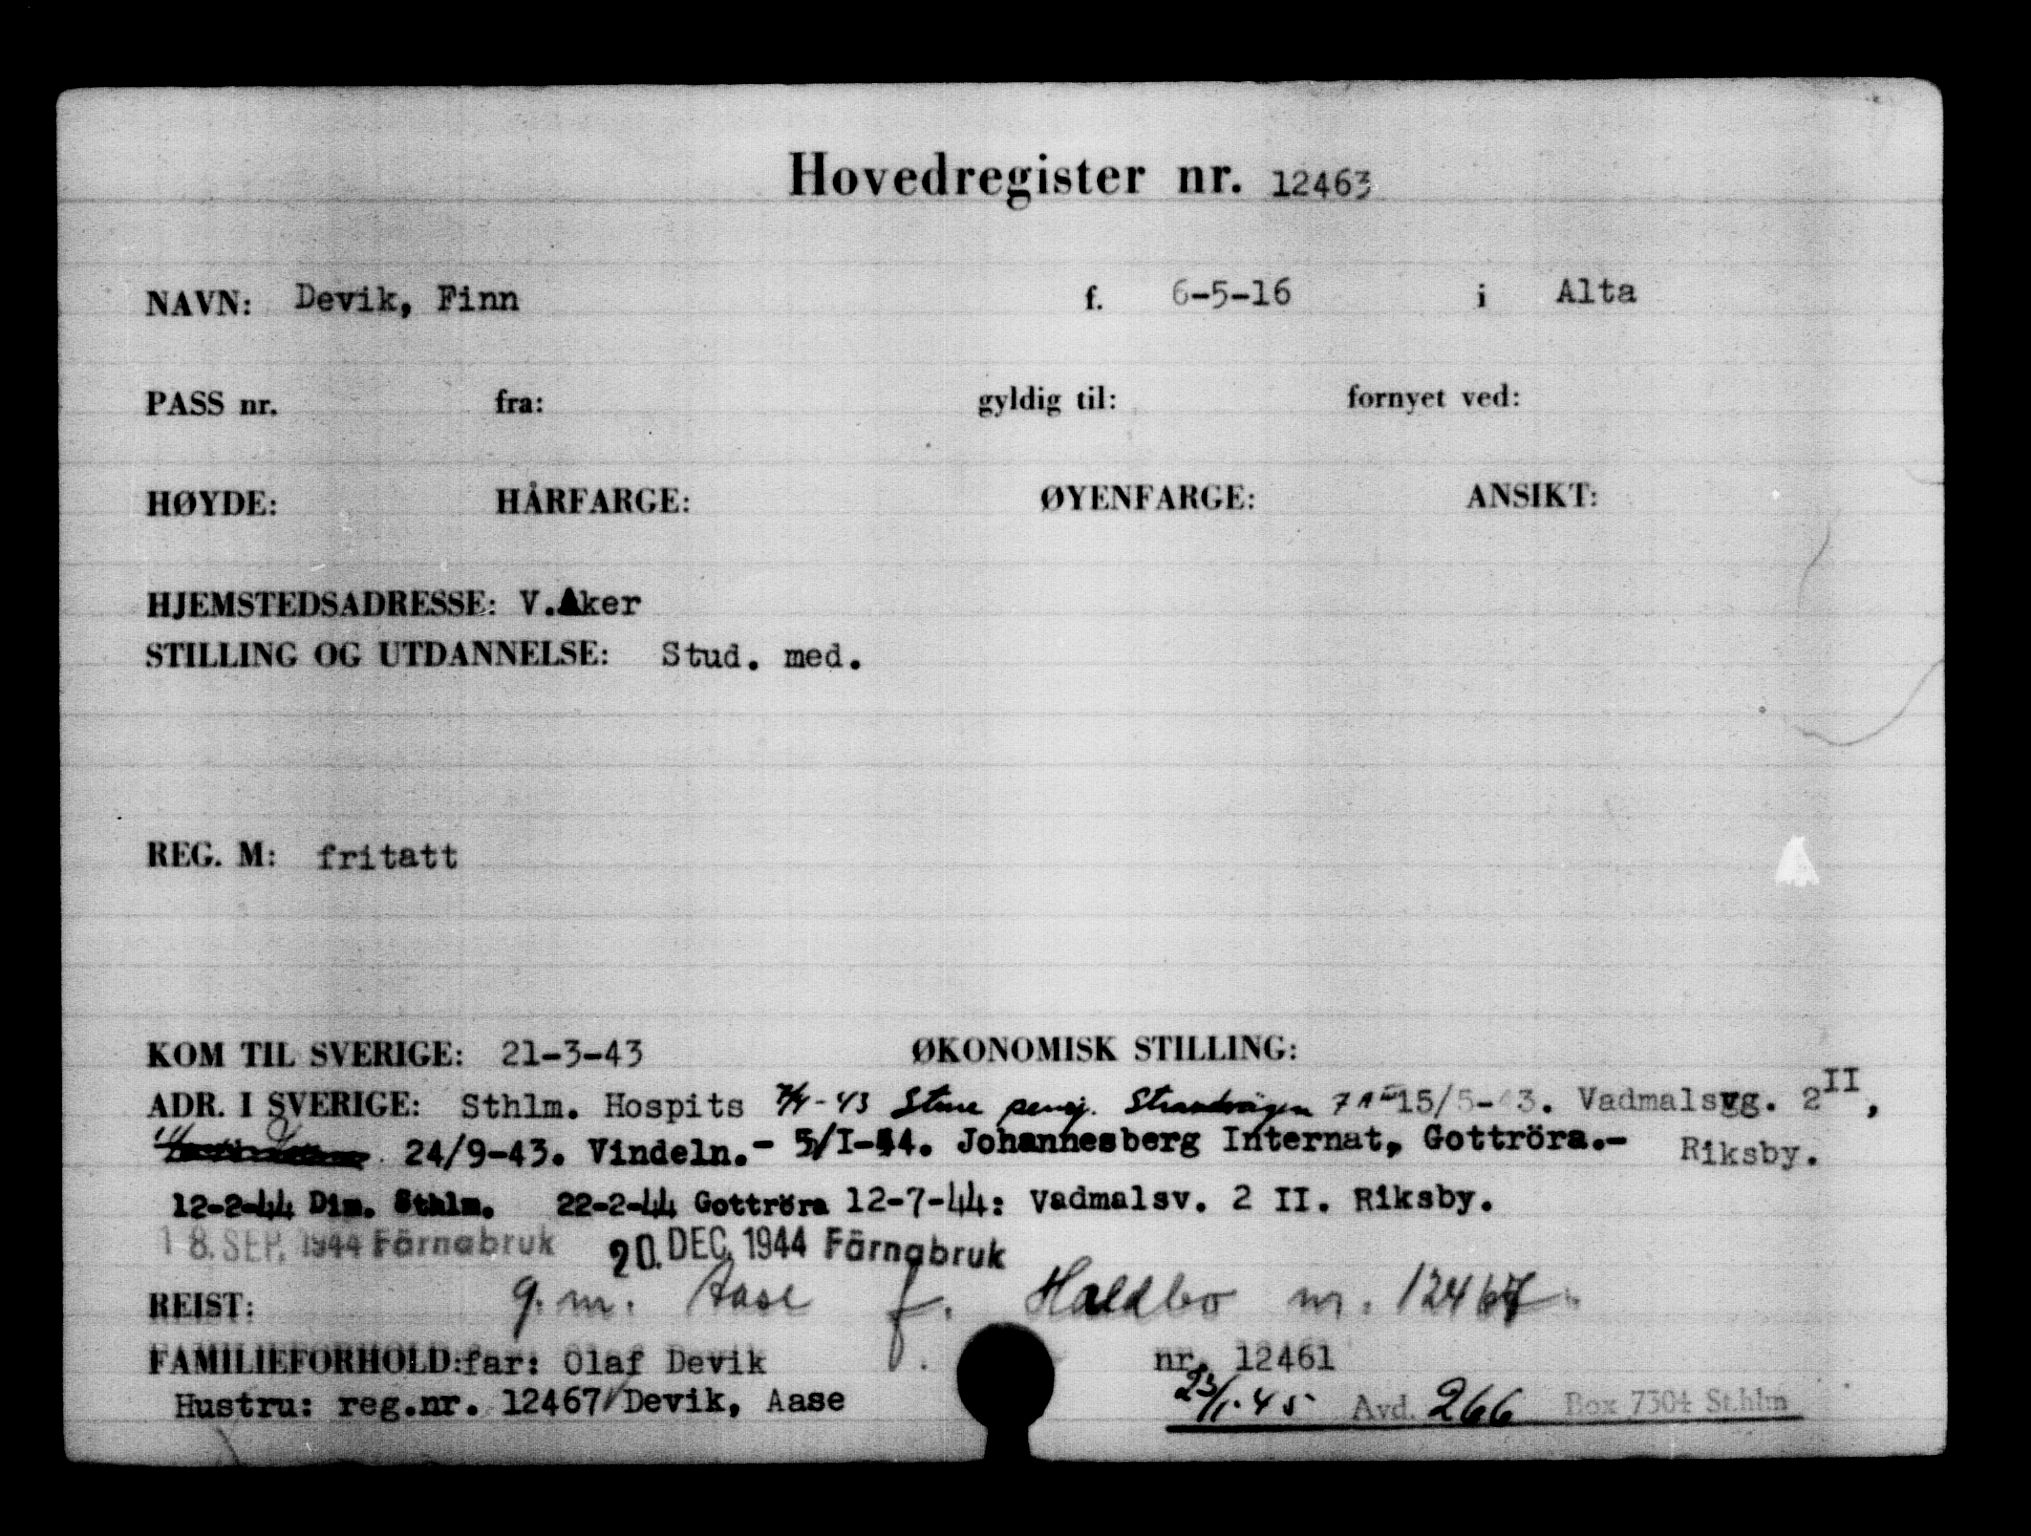 Hovedregister nr. 12463
NAVN: Devik, Finn f. 6-5-16 i Alta
PASS nr. fra: gyldig til: fornyet ved:
HØYDE: HÅRFARGE: ØYENFARGE: ANSIKT:
HJEMSTEDSADRESSE: V.Aker
STILLING OG UTDANNELSE: Stud. med.
REG. M: fritatt
KOM TIL SVERIGE: 21-3-43 ØKONOMISK STILLING:
ADR. I SVERIGE: Sthlm. Hospits -43 Sture pensj. Strandvägen 7A 15/5-43. Vadmalsvg. 2 II,
24/9-43. Vindeln.- 5/I-44. Johannesberg Internat, Gottröra.- Riksby.
12-2-44 Dim. Sthlm. 22-2-44 Gottröra 12-7-44: Vadmalsv. 2 II. Riksby.
18. SEP. 1944 Färnabruk 20. DEC. 1944 Färnabruk
REIST: g. m. Aase f. Holdbo nr. 12467
FAMILIEFORHOLD: far: Olaf Devik f. nr. 12461
Hustru: reg.nr. 12467 Devik, Aase 23/1-45 Avd. 266 Box 7304 St.hlm